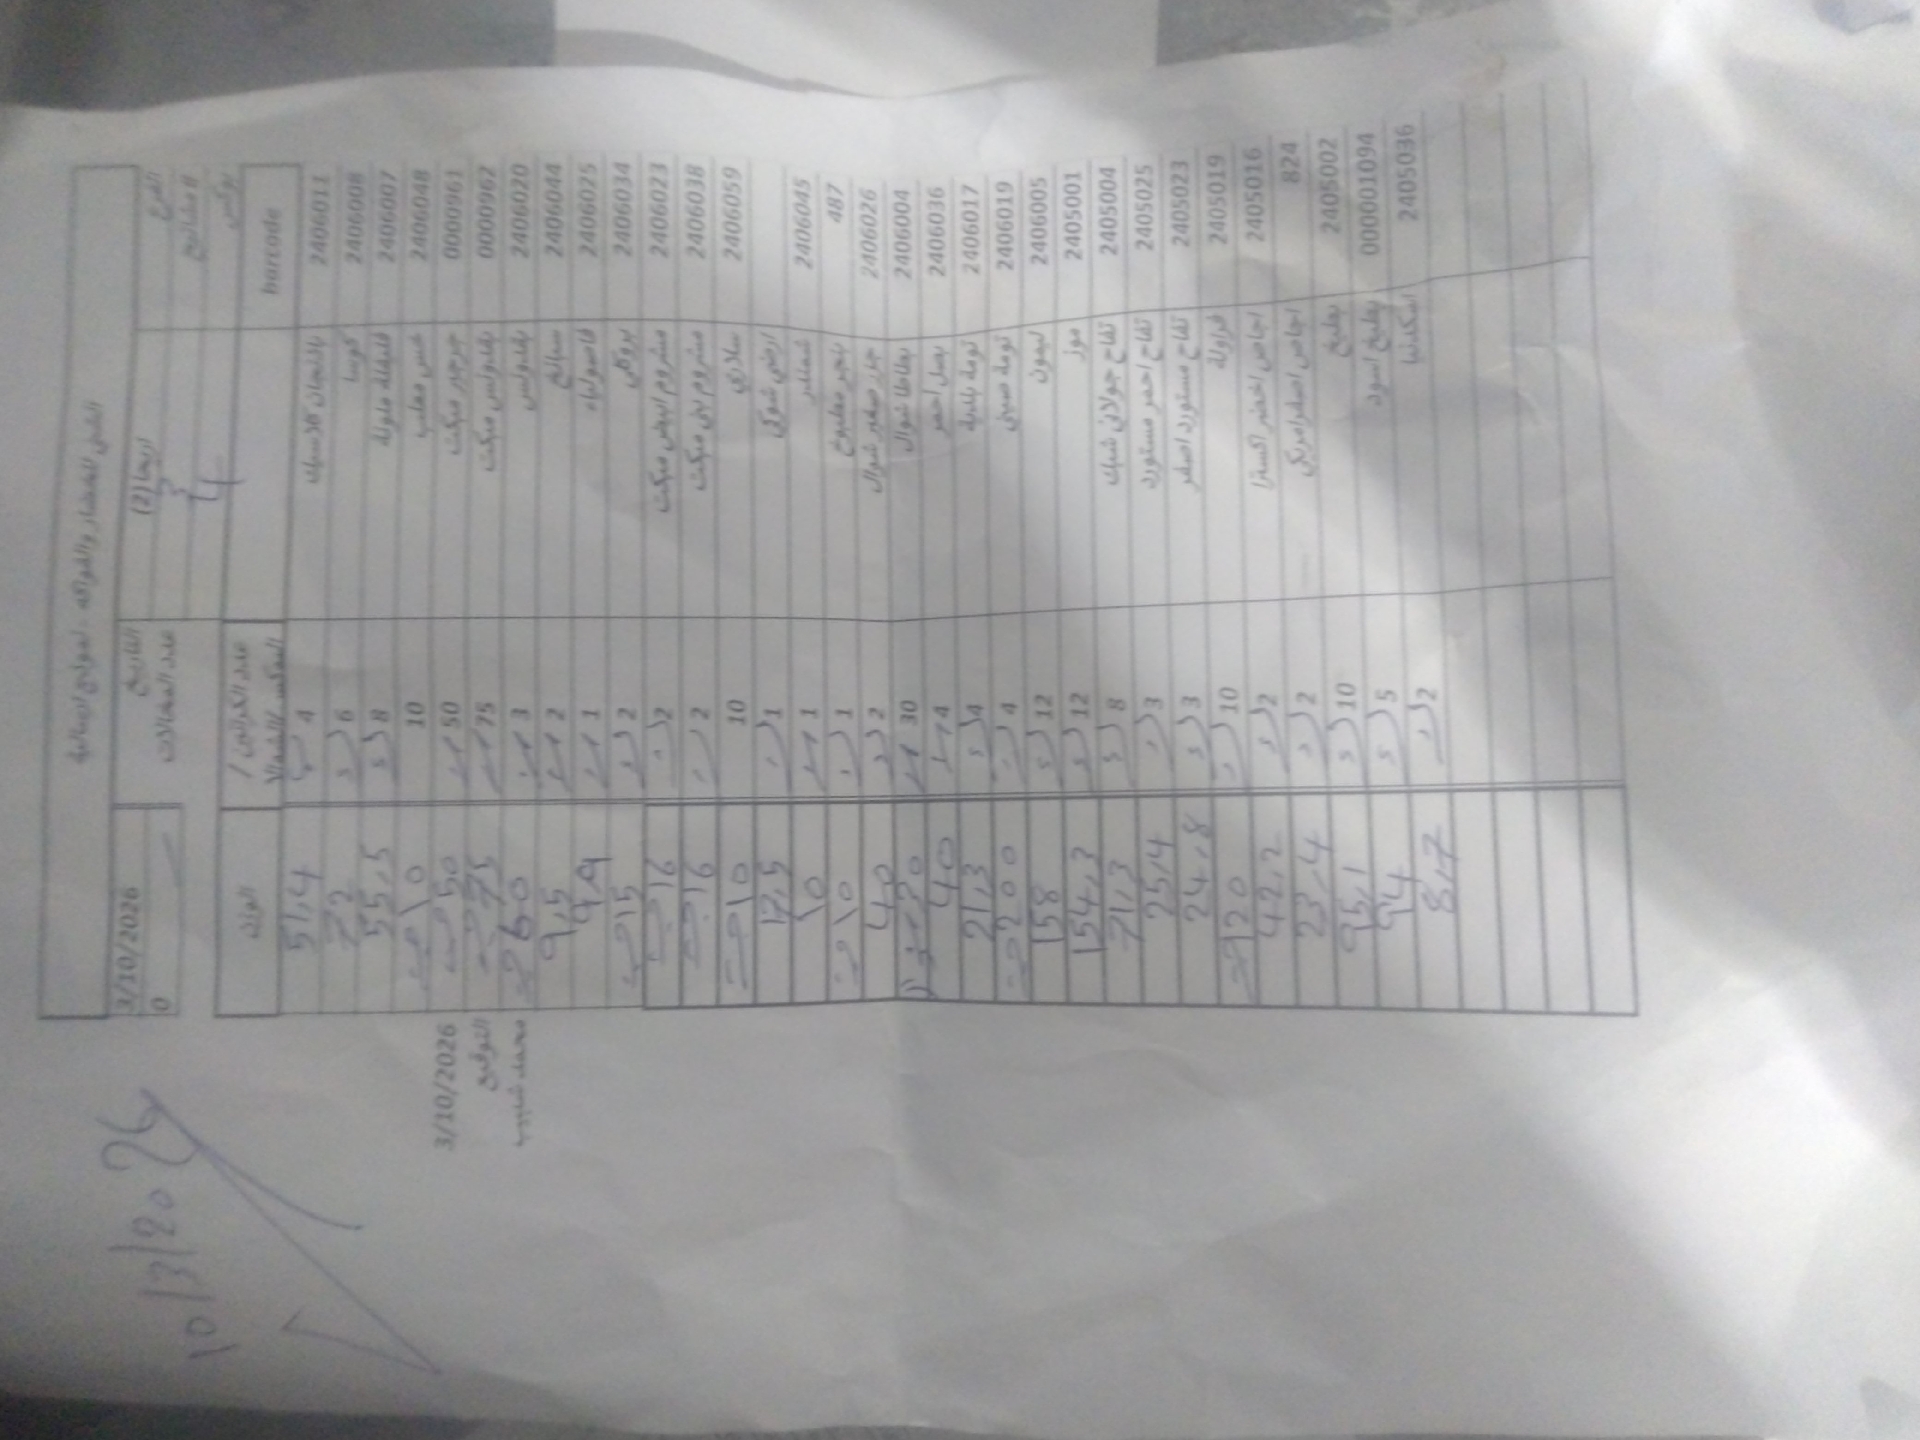 الفرع اريحا (2) التاريخ 3/10/2026
# مشاتيح 3 عدد المشالات 0
بوكس 4
barcode عدد الكراتين / البوكس / الشوال الوزن
2406011 باذنجان كلاسيك 4 51,4
2406008 كوسا 6 72
2406007 فليفلة ملونة 8 55,5
2406048 خس معلب 10 10
0000961 جرجير مبكت 50 50
0000962 بقدونس مبكت 75 75
2406020 بقدونس 3 260
2406044 سبانخ 2 9,5
2406025 فاصولياء 1 9,9
2406034 بروكلي 2 15
2406023 مشروم ابيض مبكت 2 16
2406038 مشروم بني مبكت 2 16
2406059 سلاري 10 10
ارضي شوكي 1 17,5
2406045 شمندر 1 10
487 بنجر مطبوخ 1 10
2406026 جزر صغير شوال 2 40
2406004 بطاطا شوال 30 30
2406036 بصل احمر 4 40
2406017 ثومة بلدية 4 21,3
2406019 ثومة صيني 4 200
2406005 ليمون 12 158
2405001 موز 12 154,3
2405004 تفاح جولاني شبك 8 71,3
2405025 تفاح احمر مستورد 3 25,4
2405023 تفاح مستورد اصفر 3 24,8
2405019 فراولة 10 20
2405016 اجاص اخضر اكسترا 2 42,2
824 اجاص اصفر امريكي 2 23,4
2405002 بطيخ 10 95,1
000001094 بطيخ اسود 5 94
2405036 اسكدنيا 2 8,7
3/10/2026
التوقيع
10/3/2026